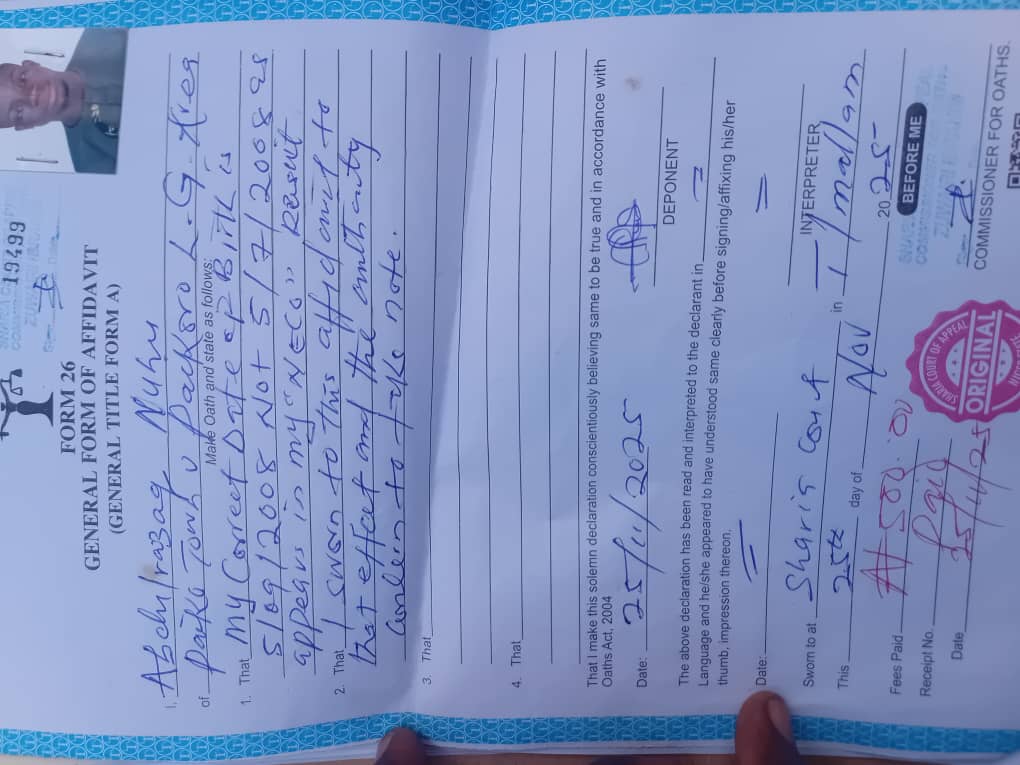 19499
FORM 26
GENERAL FORM OF AFFIDAVIT
(GENERAL TITLE FORM A)
I, Abdulrazaq Nuhu
of paiko Town paikoro L.G. Area
Make Oath and state as follows:
1. That my correct Date of BirtH is
5/09/2008 Not 5/7/2008 as
appears in my "NECO" Result
2. That I sworn to this affidavit to
that effect and the authority
to take note.
3. That
4. That
That I make this solemn declaration conscientiously believing same to be true and in accordance with
Oaths Act, 2004
Date: 25/11/2025
DEPONENT
The above declaration has been read and interpreted to the declarant in =
Language and he/she appeared to have understood same clearly before signing/affixing his/her
thumb, impression thereon.
= =
Date:
INTERPRETER
Sworn to at Sharia Court in Mallam
This 25th day of Nov 20 25
BEFORE ME
Fees Paid ₦ 500.00
Receipt No. Paid
Date 25/11/25
SHARIA COURT OF APPEAL
ORIGINAL
COMMISSIONER FOR OATHS.